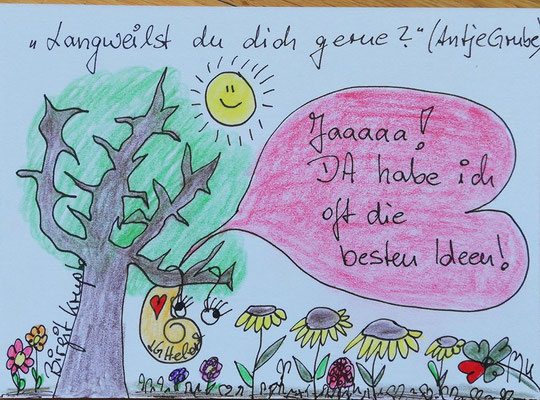 „Langweilst du dich gerne?“ (Antje Grube)
Jaaaaa!
DA habe ich
oft die
besten Ideen!
Birgit